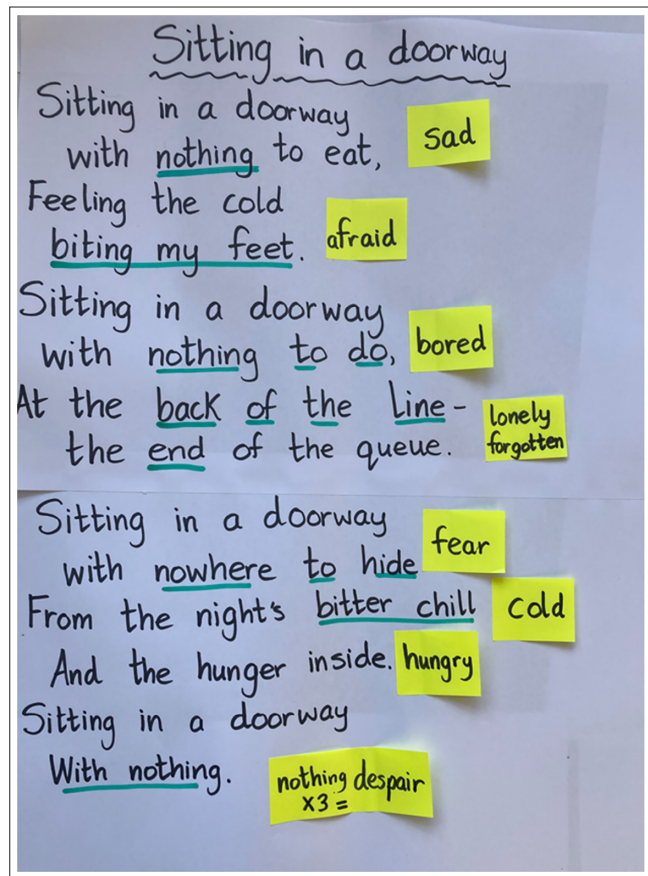 Sitting in a doorway
Sitting in a doorway
with nothing to eat,
sad
Feeling the cold
biting my feet.
afraid
Sitting in a doorway
with nothing to do,
bored
At the back of the Line -
the end of the queue.
lonely
forgotten
Sitting in a doorway
with nowhere to hide
fear
From the night's bitter chill
cold
And the hunger inside.
hungry
Sitting in a doorway
With nothing.
nothing despair
x3 =